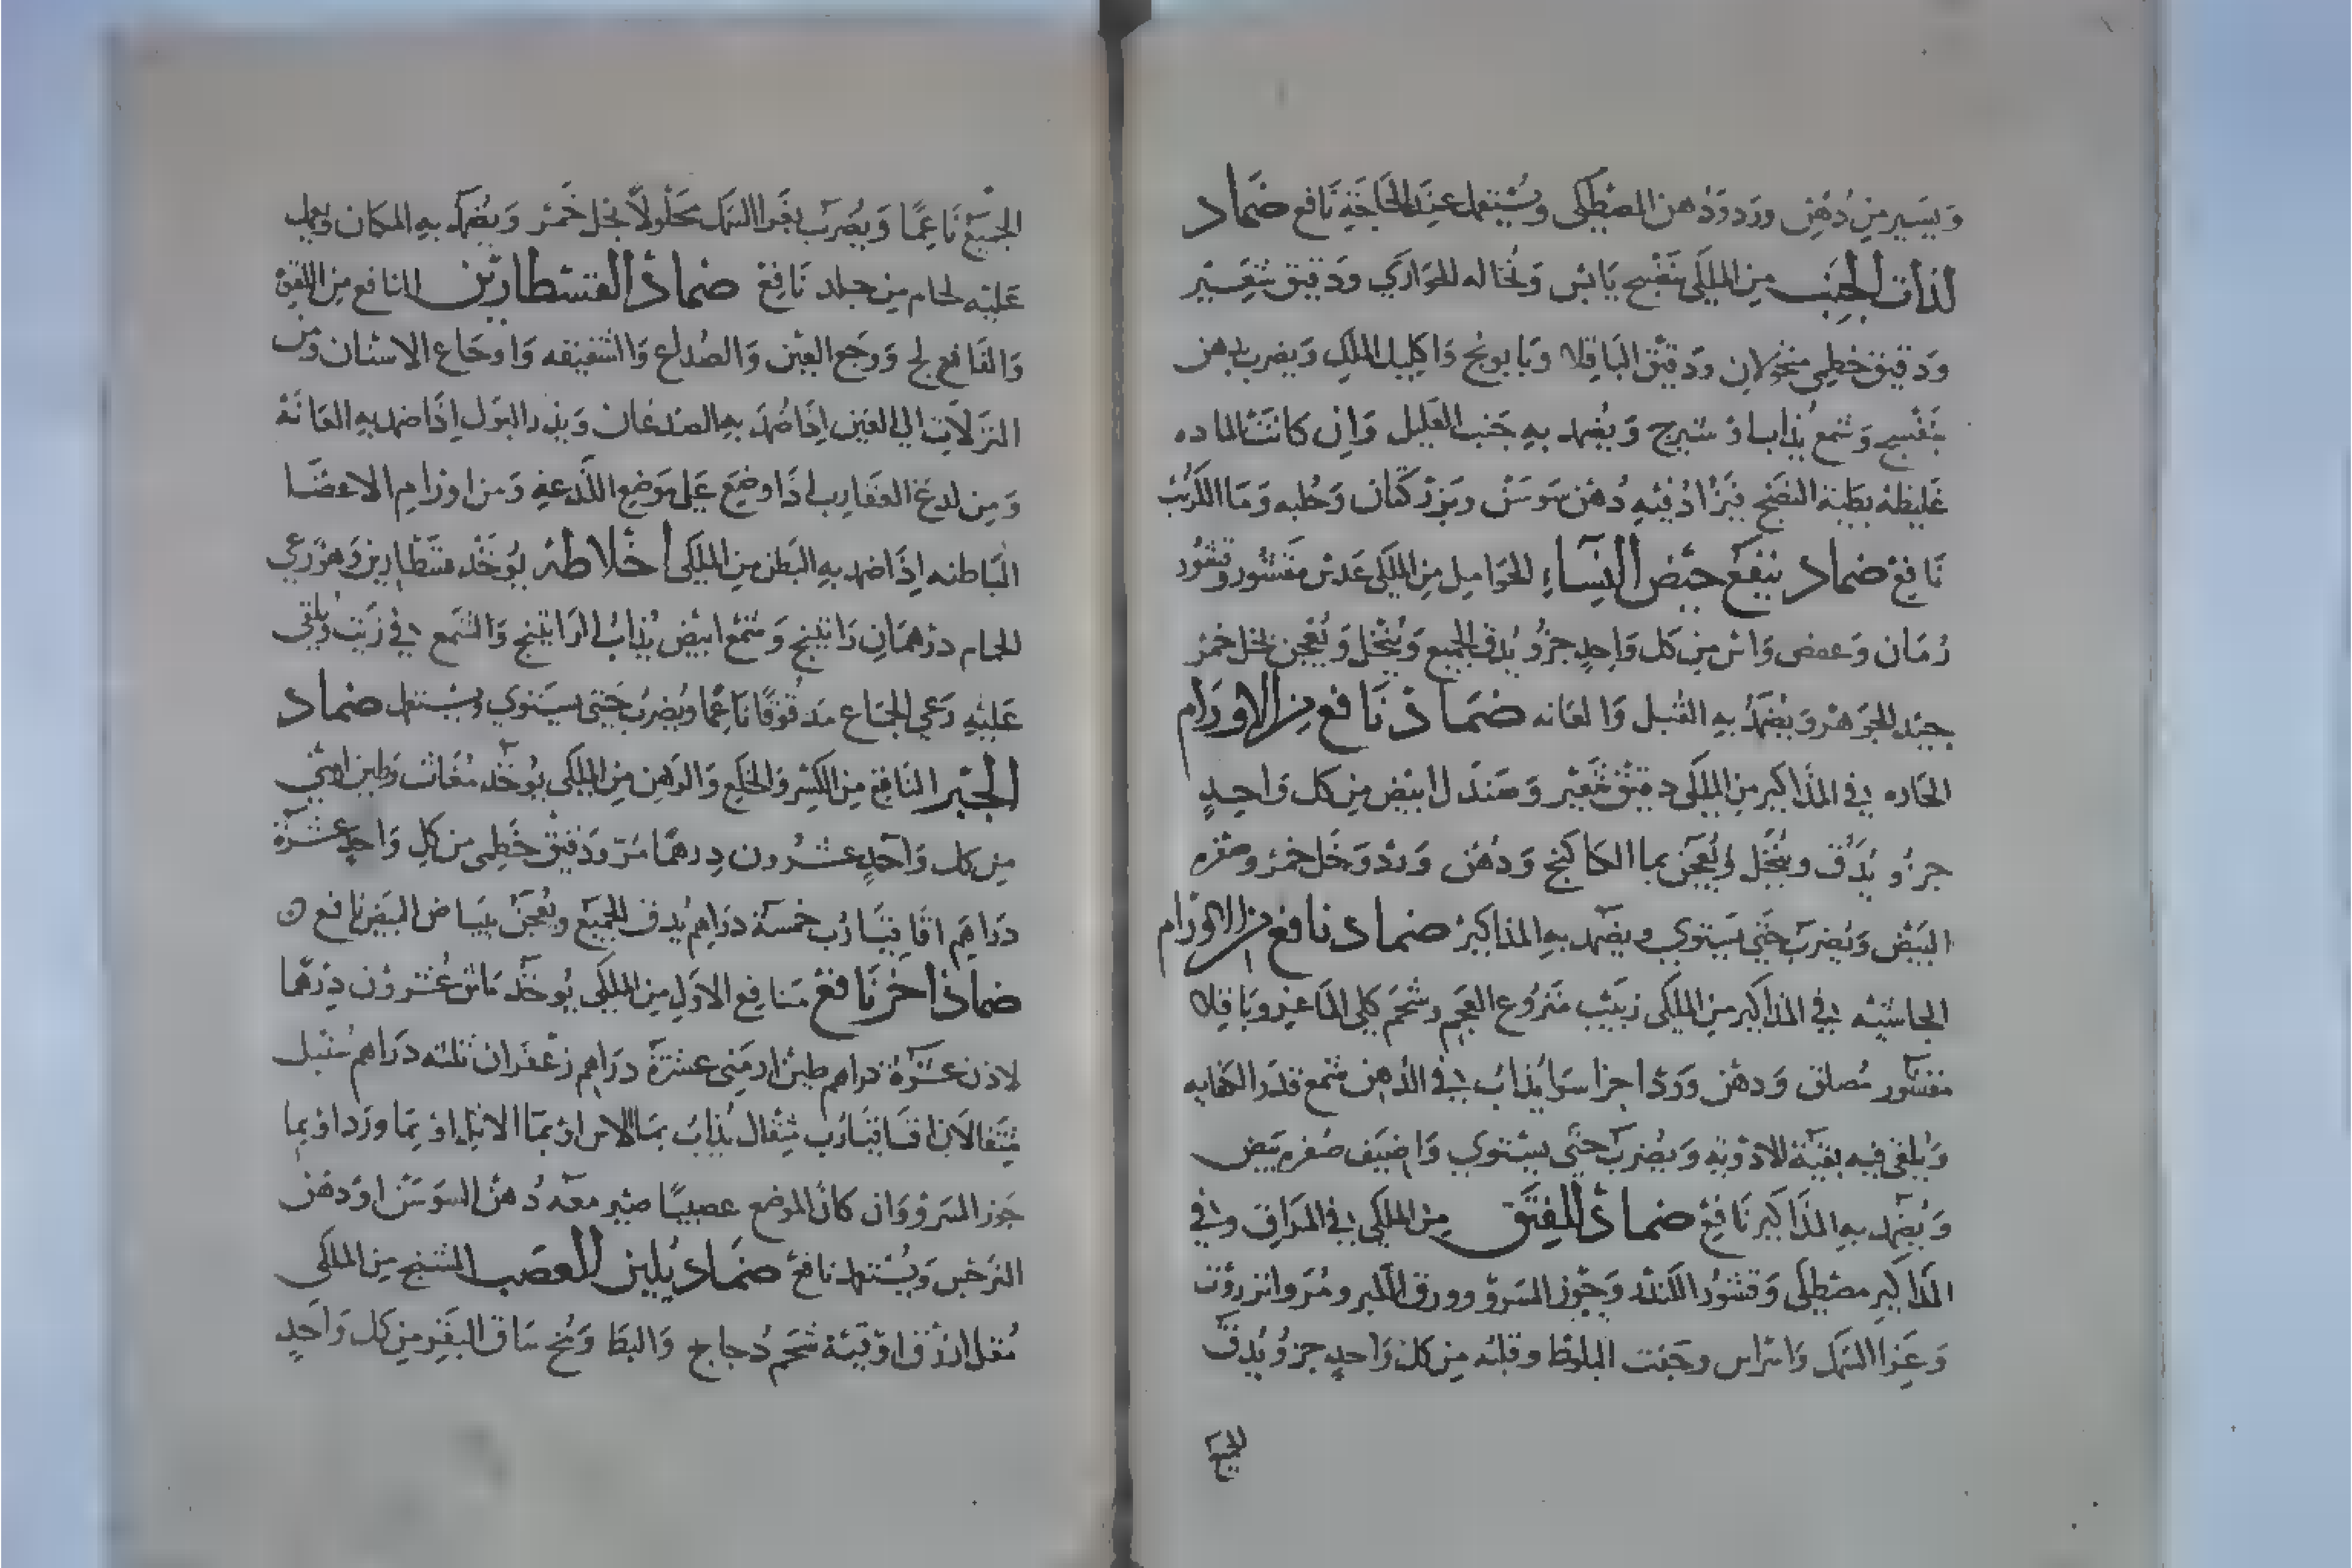 ويسير من دهن ورد ودهن المصطكى ويستعمل عند الحاجة نافع ضماد
لذات الجنب من الملكي بنفسج يابس ونخاله الحواري ودقيق شعير
ودقيق خطمى منخولان ودقيق الباقلا وبابونج واكليل الملك ويضرب بدهن
بنفسج وشمع يذاب او شيرج ويضمد به جنب العليل وان كانت الماده
غليظة بطية النضج فيزاد فيه دهن سوسن وبزر كتان وحلبه وما الكرنب
نافع ضماد ينفع حيض النساء الحوامل من الملكي عدس مقشور وقشور
رمان وعفص واس من كل واحد جزو يدق الجميع وينخل ويعجن بخل خمر
جيد الجوهر ويضمد به القبل والعانه ضماد نافع من الاورام
الحاره في المذاكير من الملكي دقيق شعير وصندل ابيض من كل واحد
جزو يدق وينخل ويعجن بما الكاكنج ودهن ورد وخل خمر وصفره
البيض ويضرب حتى يستوي ويضمد به المذاكير ضماد نافع من الاورام
الجاسيه في المذاكير من الملكي زبيب منزوع العجم وشحم كلى الماعز وباقلا
مقشور مصلوق ودهن ورد اجزا سوا يذاب في الدهن شمع قدر الكفايه
ويلقى فيه بقية الادوية ويضرب حتى يستوي واضيف صفره بيض
ويضمد به المذاكير نافع ضماد الفتق من الملكي في المراق وفي
المذاكير مصطكى وقشور الكندر وجوز السرو وورق ومر وانزروت
وغرا السمك واشراس وجفت البلوط وقلته من كل واحد جزو يدق
الجميع
الجميع ناعما ويضرب بغرا السمك محلولا بخل خمر ويضمد به المكان ويعمل
عليه لحام من جلد نافع ضماد الفسطارين النافع من اللقوة
والفالج ووجع العين والصداع والشقيقه واوجاع الاسنان ومن
النزلات الى العين اذا ضمد به الصدغان ويدر البول اذا ضمد به العانة
ومن لدغ العقارب اذا وضع على موضع اللدغة ومن اورام الاعضا
الباطنه اذا ضمد به البطن من الملكي اخلاطه يوخذ فسطارين وهو رعي
الحمام درهمان راتينج وشمع ابيض يذاب الراتينج والشمع في زيت ويلقى
عليه رعي الحمام مدقوقا ناعما ويضرب حتى يستوي ويستعمل ضماد
الجبر النافع من الكسر والخلع والوهن من الملكي يوخذ مغاث وطين ارمني
من كل واحد عشرون درهما مر ودقيق خطمى من كل واحد عشرة
دراهم اقاقيا رب خمسة دراهم يدق الجميع ويعجن ببياض البيض نافع
ضماد اخر نافع منافع الاول من الملكي يوخذ ماش عشرون درهما
لاذن عشرة دراهم طين ارمني عشرة دراهم زعفران ثلثه دراهم سنبل
مثقالان اقاقيا رب مثقال يذاب بما الاس او بما الاثل او بما ورد او بما
جوز السرو وان كان الموضع عصبيا صير معه دهن السوسن او دهن
النرجس ويستعمل نافع ضماد يلين العصب المتشنج من الملكي
مقل ازرق اوقية شحم دجاج والبط ومخ ساق البقر من كل واحد